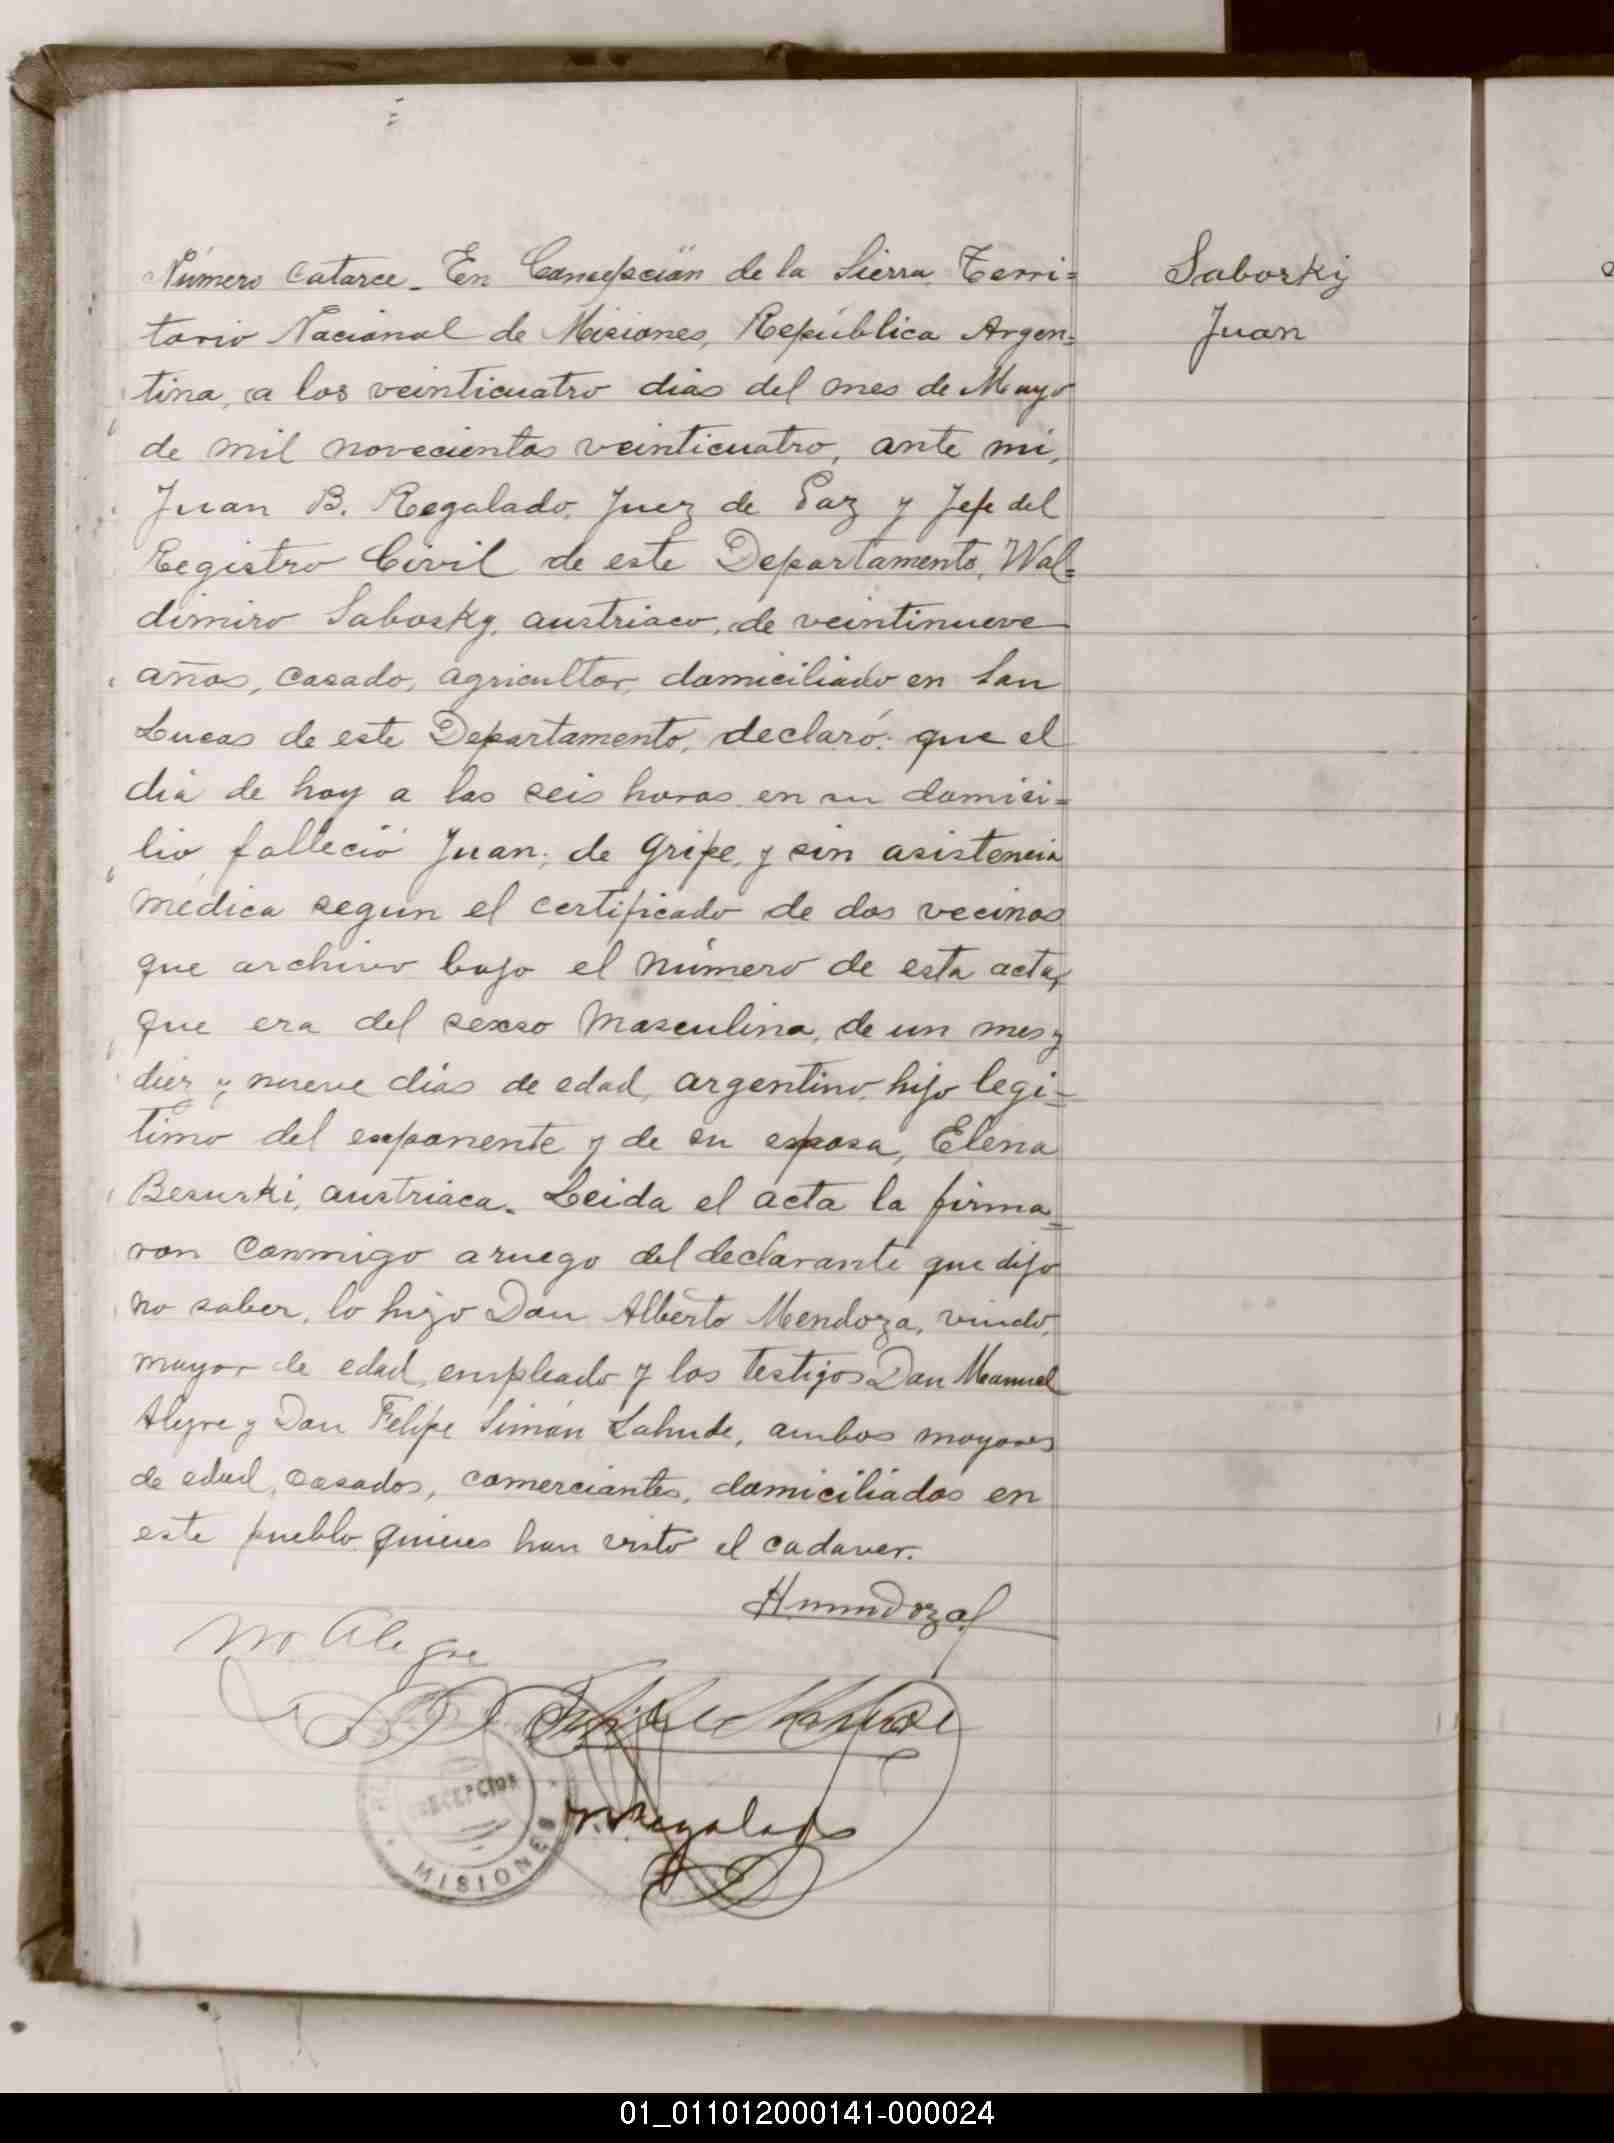 Número catorce. En Concepción de la Sierra, Terri=
torio Nacional de Misiones, República Argen=
tina, a los veinticuatro dias del mes de Mayo
de mil novecientos veinticuatro, ante mi,
Juan B. Regalado, Juez de Paz y Jefe del
Registro Civil de este Departamento, Wal=
dimiro Sabosky, austriaco, de veintinueve
años, casado, agricultor, domiciliado en San
Lucas de este Departamento, declaró: que el
dia de hoy a las seis horas en su domici=
lio, falleció Juan, de gripe, y sin asistencia
médica segun el certificado de dos vecinos
que archivo bajo el número de esta acta,
que era del sexso masculino, de un mes y
diez y nueve dias de edad, argentino, hijo legi=
timo del exponente y de su esposa, Elena
Besurki, austriaca. Leida el acta la firma=
ron conmigo a ruego del declarante que dijo
no saber, lo hizo Don Alberto Mendoza, viudo,
mayor de edad, empleado y los testigos Don Manuel
Alegre y Don Felipe Simón Lahude, ambos mayores
de edad, casados, comerciantes, domiciliados en
este pueblo quienes han visto el cadaver.
Saborky
Juan
Alegre
Regalado
CONCEPCION
MISIONES
01_011012000141-000024